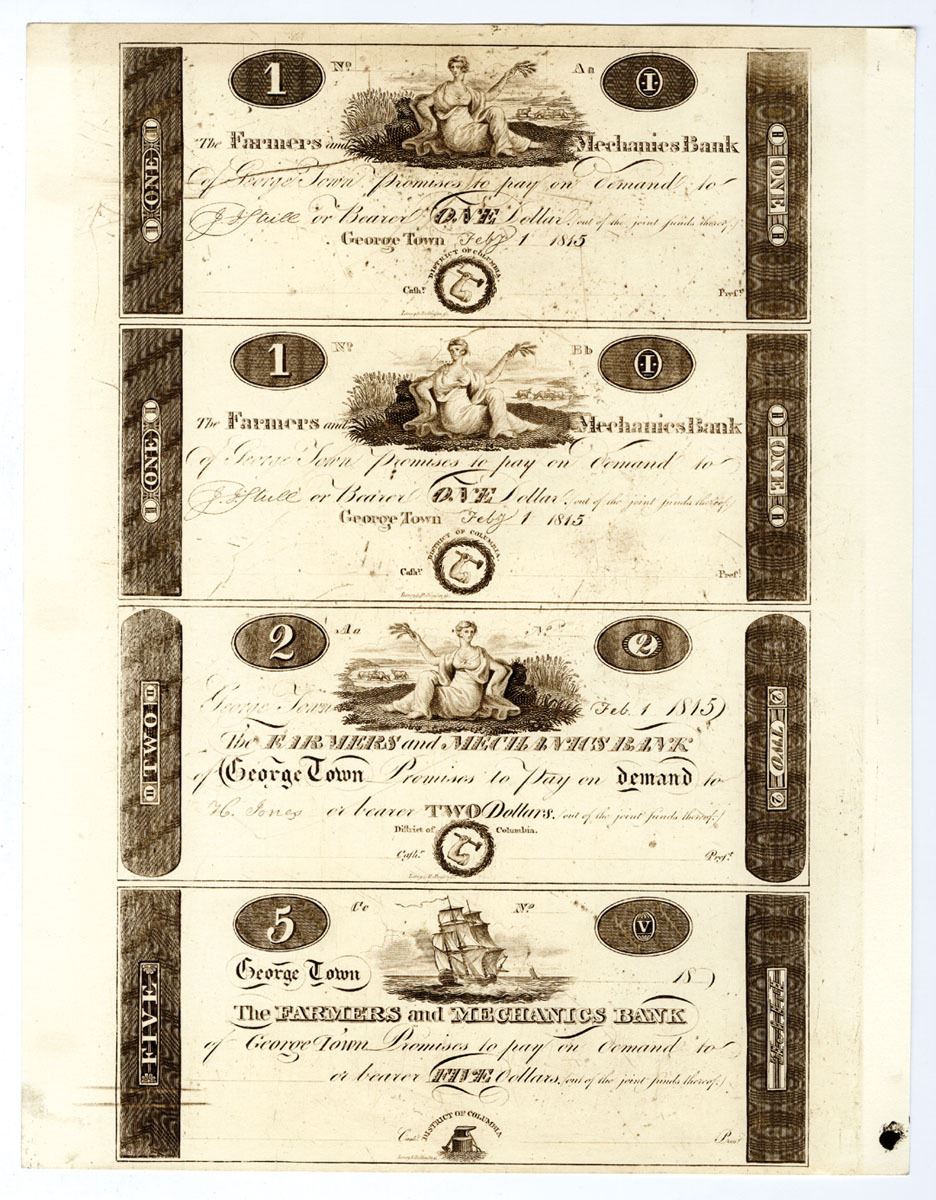 1 No Aa I
The Farmers and Mechanics Bank
of George Town Promises to pay on demand to
or Bearer ONE Dollar (out of the joint funds thereof.)
George Town Feby 1 1815
DISTRICT OF COLUMBIA
Cashr. Presd.
I ONE I
I ONE I
1 No Bb I
The Farmers and Mechanics Bank
of George Town Promises to pay on demand to
or Bearer ONE Dollar (out of the joint funds thereof.)
George Town Feby 1 1815
DISTRICT OF COLUMBIA.
Cashr. Presd.
I ONE I
I ONE I
2 Aa No 2
George Town Feb. 1 1815
The FARMERS and MECHANICS BANK
of George Town Promises to Pay on demand to
H. Jones or bearer TWO Dollars. (out of the joint funds thereof.)
District of Columbia.
Cashr. Presdt.
II TWO II
2 TWO 2
5 Cc No V
George Town 18
The FARMERS and MECHANICS BANK
of George Town Promises to pay on demand to
or bearer FIVE Dollars, (out of the joint funds thereof.)
DISTRICT OF COLUMBIA
FIVE